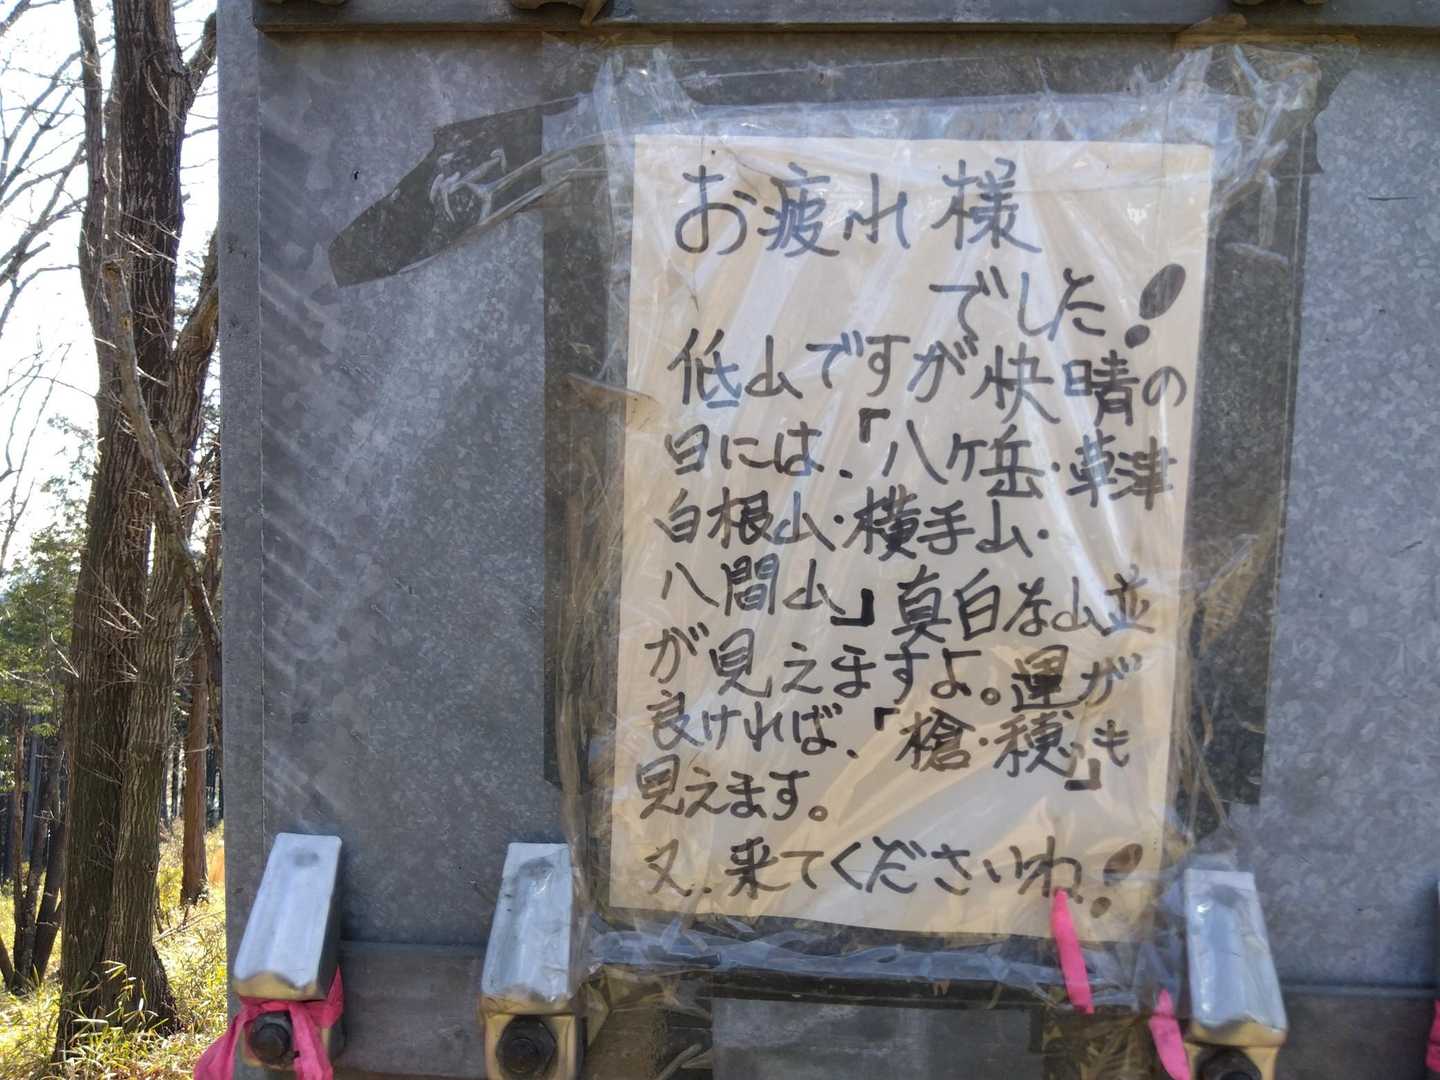 お疲れ様
でした!
低山ですが快晴の
日には、「八ヶ岳・草津
白根山・横手山・
八間山」真白な山並
が見えますよ。運が
良ければ、「槍・穂」も
見えます。
又、来てくださいね!